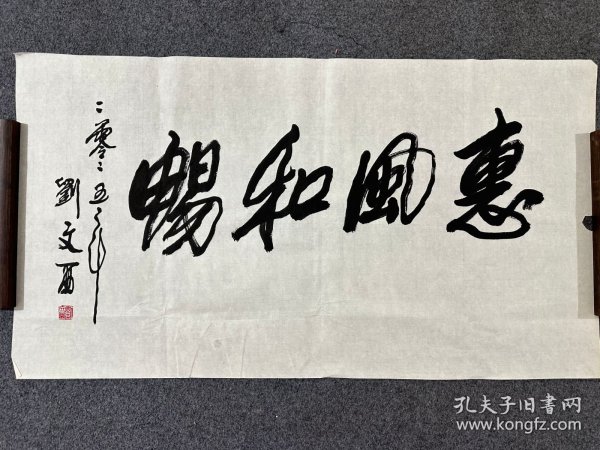 惠風和暢
二零零五年
劉文西
孔夫子旧书网
www.kongfz.com